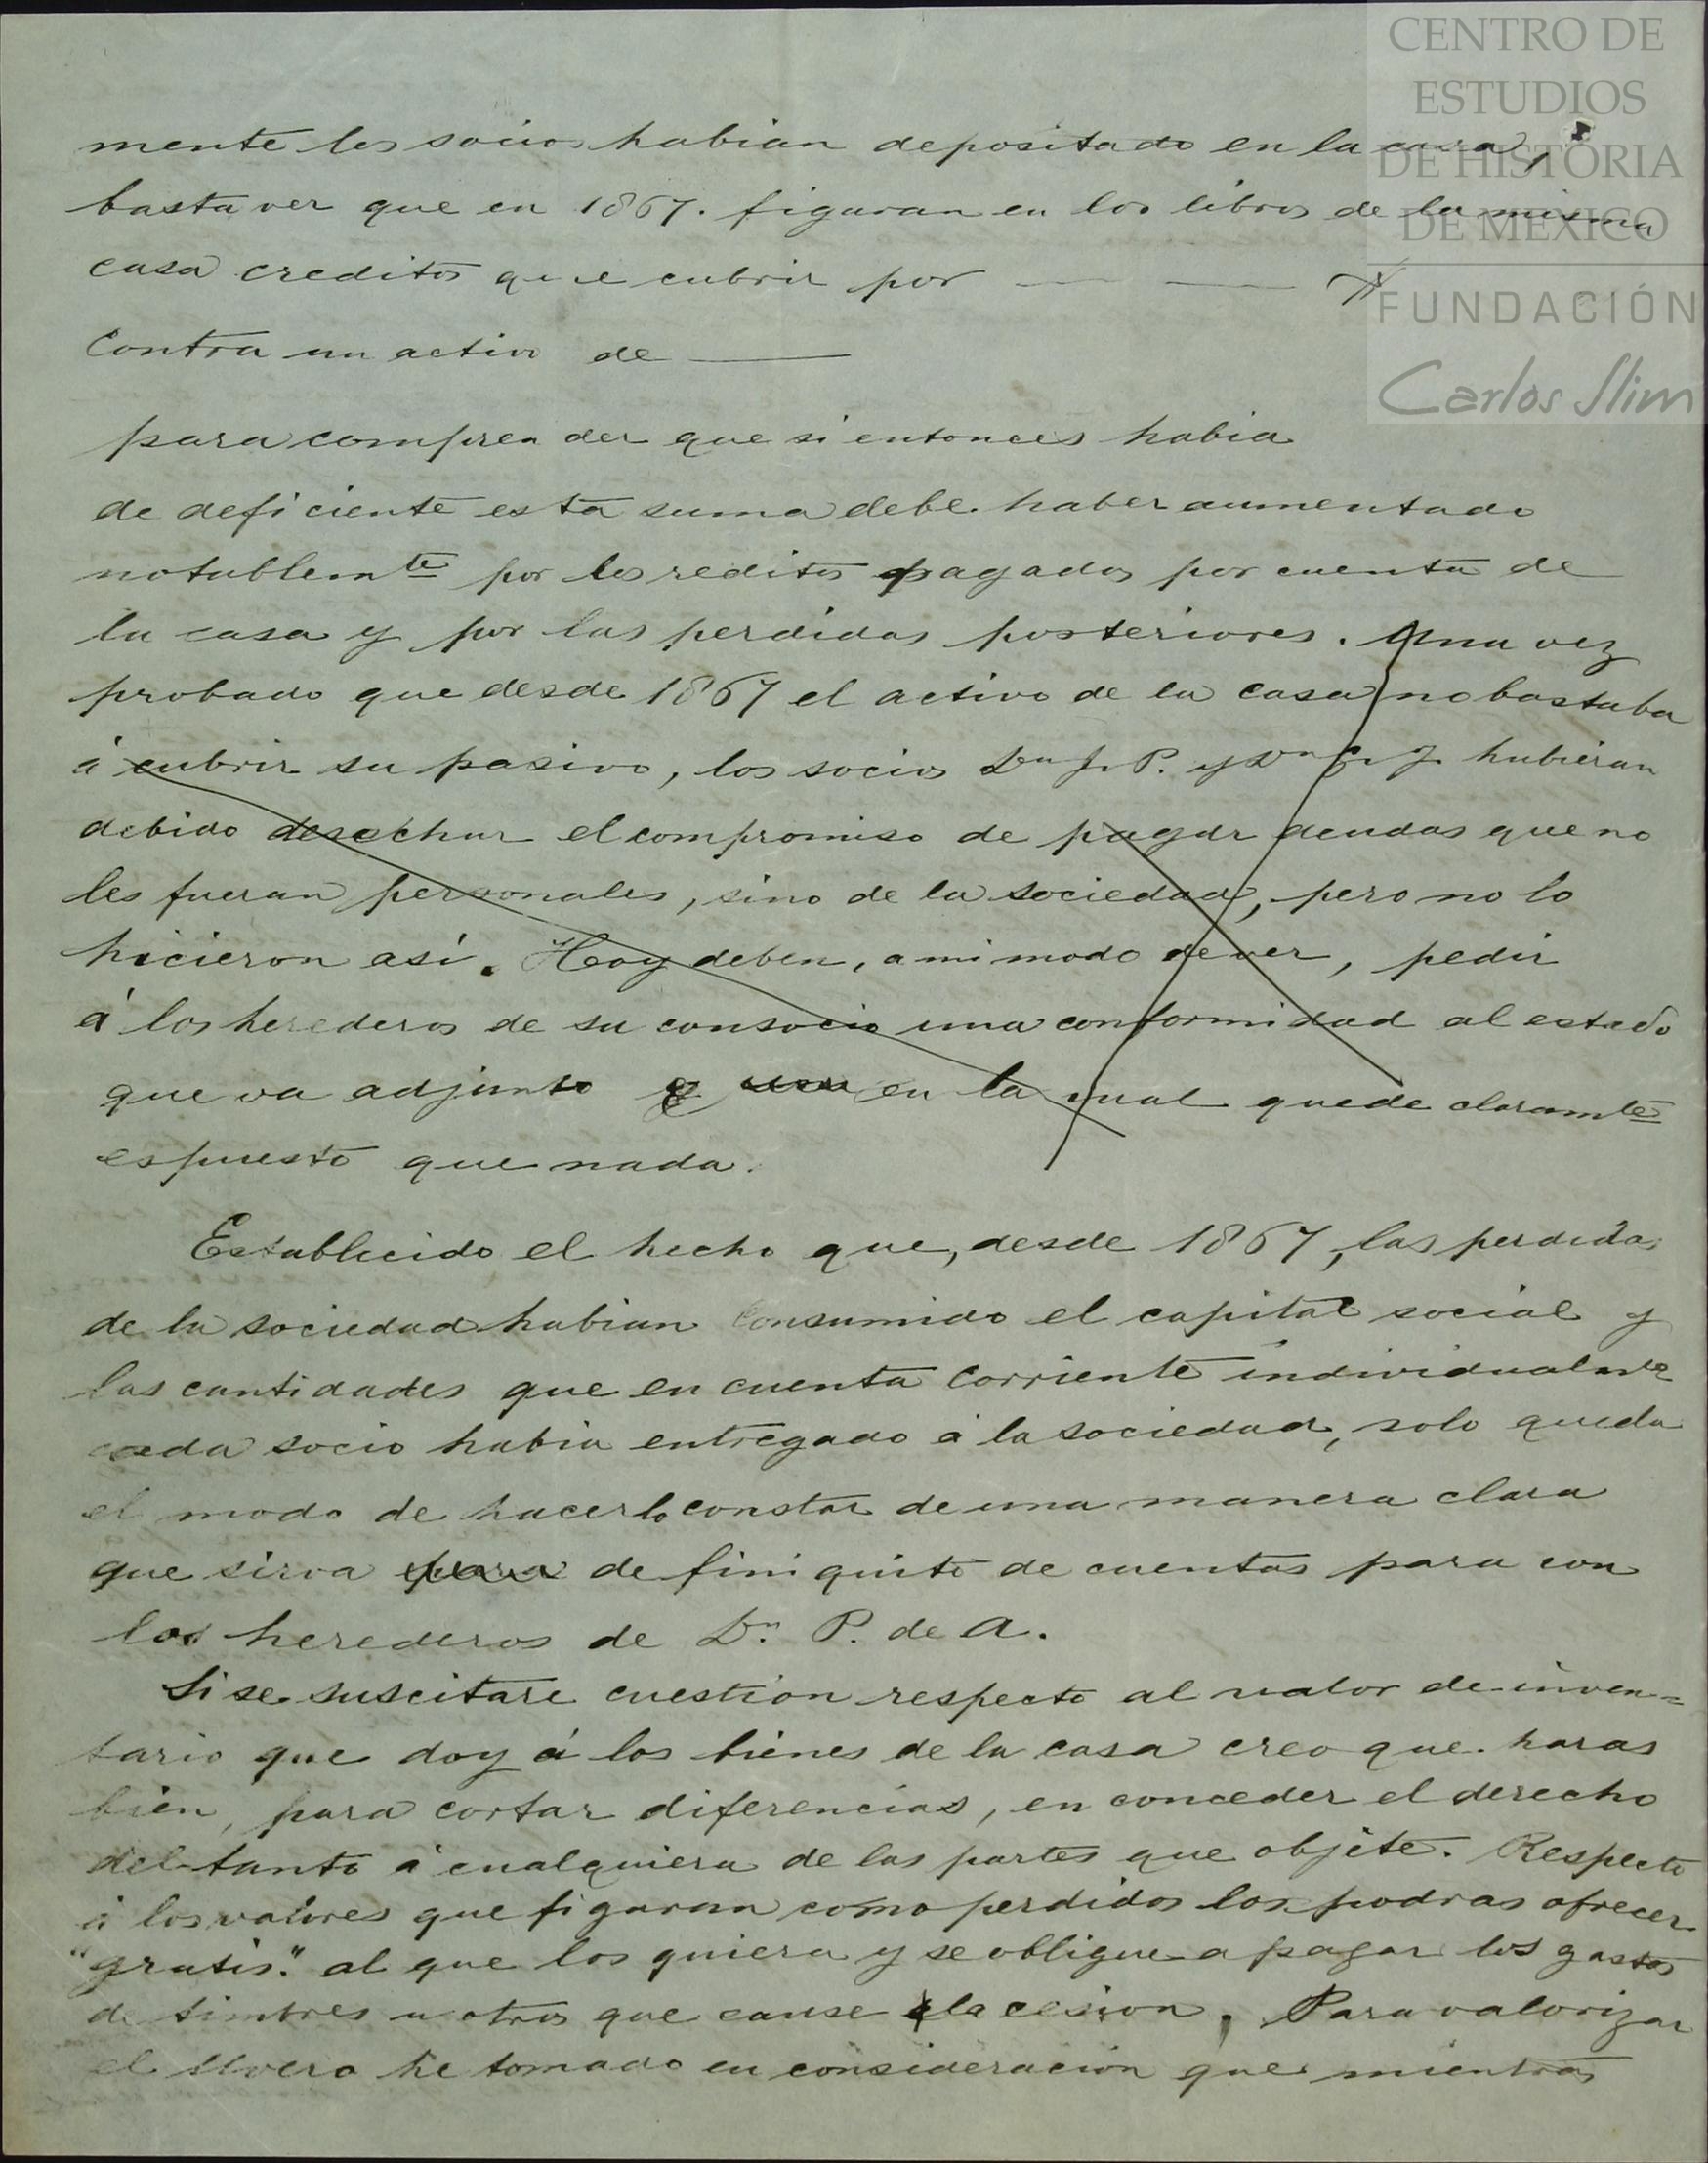 CENTRO DE
ESTUDIOS
DE HISTORIA
DE MEXICO
FUNDACIÓN
Carlos Slim
mente los socios habian depositado en la casa,
basta ver que en 1867. figuran en los libros de la misma
casa creditos que cubrir por —— ——
contra un activo de ——
para comprender que si entonces habia
de deficiente esta suma debe haber aumentado
notablemte por los reditos pagados por cuenta de
la casa y por las perdidas posteriores. Una vez
probado que desde 1867 el activo de la casa no bastaba
á cubrir su pasivo, los socios Dn J. P. y Dn hubieran
debido desechar el compromiso de pagar deudas que no
les fueran personales, sino de la sociedad, pero no lo
hicieron así. Hoy deben, a mi modo de ver, pedir
á los herederos de su consocio una conformidad al estado
que va adjunto en la cual quede claramte
espuesto que nada.
Establecido el hecho que, desde 1867, las perdidas
de la sociedad habian consumido el capital social y
las cantidades que en cuenta corriente individualmte
cada socio habia entregado á la sociedad, solo queda
el modo de hacerlo constar de una manera clara
que sirva para de finiquito de cuentas para con
los herederos de Dn. P. de A.
Si se suscitare cuestion respecto al valor de inven=
tario que doy á los bienes de la casa creo que haras
bien, para cortar diferencias, en conceder el derecho
del tanto á cualquiera de las partes que objete. Respecto
á los valores que figuran como perdidos los podras ofrecer
"gratis." al que los quiera y se obligue a pagar los gastos
de timbres u otros que cause la cesion. Para valorizar
el he tomado en consideracion que mientras